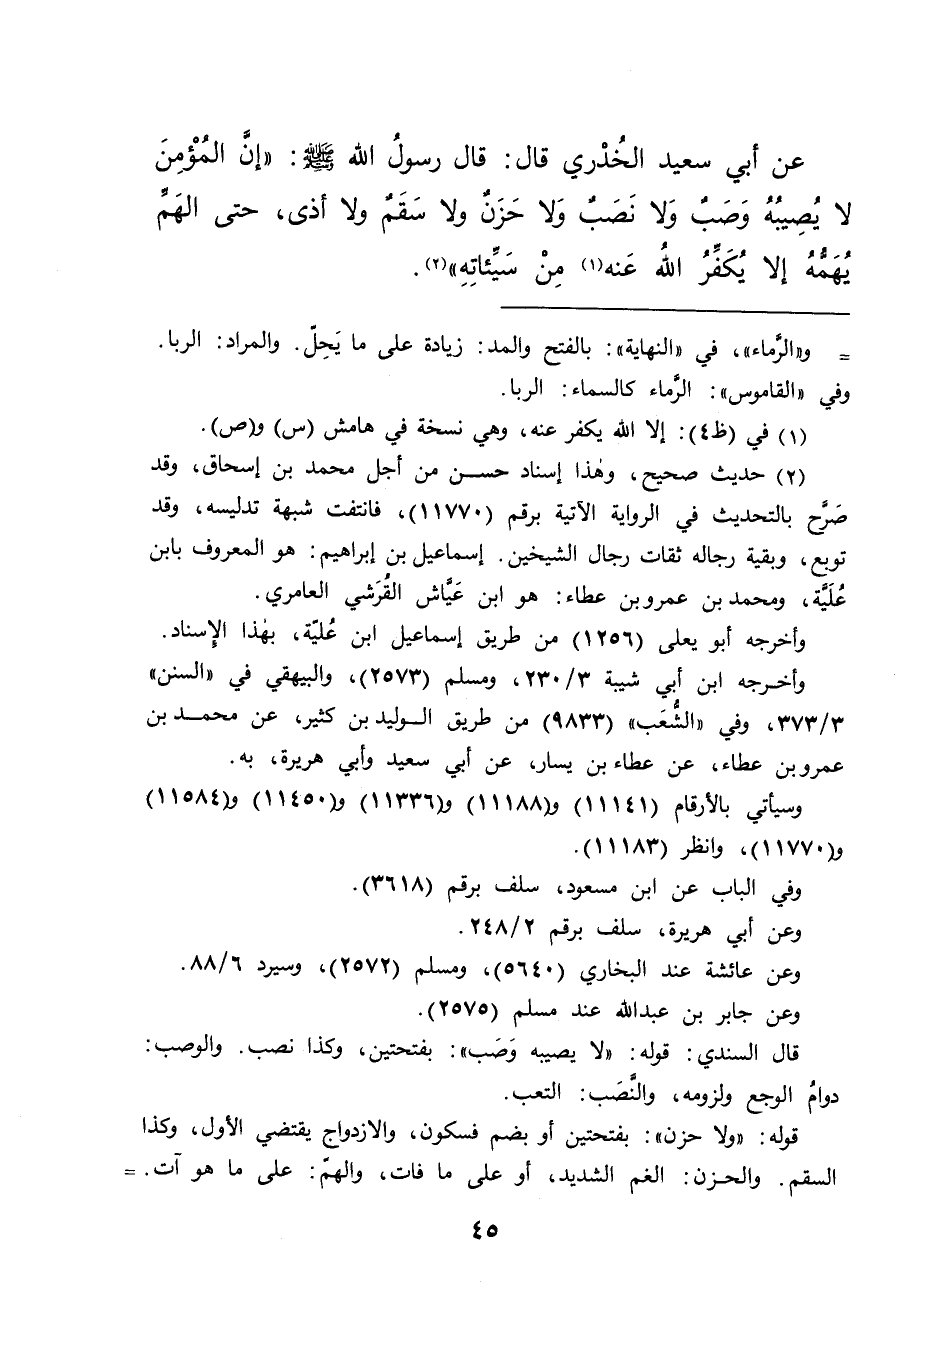 عن أبي سعيد الخُدْري قال: قال رسولُ الله ﷺ: «إنَّ المُؤْمِنَ
لا يُصِيبُهُ وَصَبٌ وَلا نَصَبٌ وَلا حَزَنٌ ولا سَقَمٌ ولا أذى، حتى الهَمِّ
يُهَمُّهُ إلا يُكَفِّرُ اللهُ عَنه(١) مِنْ سَيِّئاتِهِ»(٢).
= و«الرَّماء»، في «النهاية»: بالفتح والمد: زيادة على ما يَحِلّ. والمراد: الربا.
وفي «القاموس»: الرَّماء كالسماء: الربا.
(١) في (ظ٤): إلا الله يكفر عنه، وهي نسخة في هامش (س) و(ص).
(٢) حديث صحيح، وهذا إسناد حسن من أجل محمد بن إسحاق، وقد
صَرَّح بالتحديث في الرواية الآتية برقم (١١٧٧٠)، فانتفت شبهة تدليسه، وقد
توبع، وبقية رجاله ثقات رجال الشيخين. إسماعيل بن إبراهيم: هو المعروف بابن
عُلَيَّة، ومحمد بن عمرو بن عطاء: هو ابن عَيَّاش القُرَشي العامري.
وأخرجه أبو يعلى (١٢٥٦) من طريق إسماعيل ابن عُليّة، بهٰذا الإسناد.
وأخرجه ابن أبي شيبة ٢٣٠/٣، ومسلم (٢٥٧٣)، والبيهقي في «السنن»
٣٧٣/٣، وفي «الشُّعَب» (٩٨٣٣) من طريق الوليد بن كثير، عن محمد بن
عمرو بن عطاء، عن عطاء بن يسار، عن أبي سعيد وأبي هريرة، به.
وسيأتي بالأرقام (١١١٤١) و(١١١٨٨) و(١١٣٣٦) و(١١٤٥٠) و(١١٥٨٤)
و(١١٧٧٠)، وانظر (١١١٨٣).
وفي الباب عن ابن مسعود، سلف برقم (٣٦١٨).
وعن أبي هريرة، سلف برقم ٢٤٨/٢.
وعن عائشة عند البخاري (٥٦٤٠)، ومسلم (٢٥٧٢)، وسيرد ٨٨/٦.
وعن جابر بن عبدالله عند مسلم (٢٥٧٥).
قال السندي: قوله: «لا يصيبه وَصَب»: بفتحتين، وكذا نصب. والوصب:
دوامُ الوجع ولزومه، والنَّصَب: التعب.
قوله: «ولا حزن»: بفتحتين أو بضم فسكون، والازدواج يقتضي الأول، وكذا
السقم. والحزن: الغم الشديد، أو على ما فات، والهمّ: على ما هو آت. =
٤٥